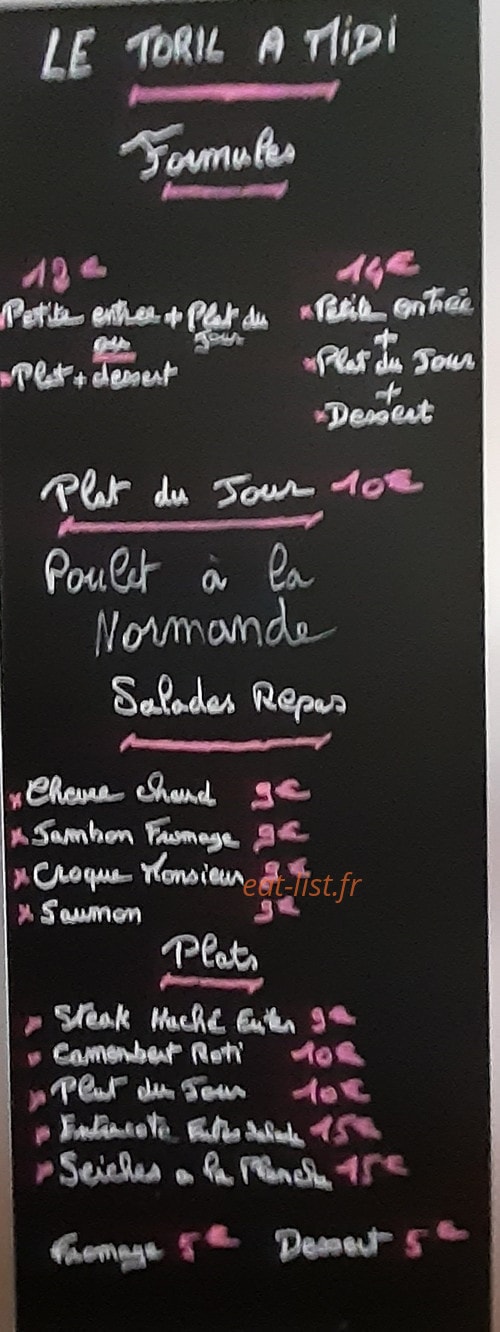 LE TORIL A MiDi
Formules
12€ 14€
Petite entree + Plat du Jour
ou
Plat + dessert
Petite entrée
+
Plat du Jour
+
Dessert
Plat du Jour 10€
Poulet à la
Normande
Salades Repas
Chevre chaud 9€
Jambon Fromage 9€
Croque Monsieur 9€
eat-list.fr
Saumon 9€
Plats
Steak Haché 9€
Camembert Roti 10€
Plat du Jour 10€
Entrecote 15€
Seiches a la Plancha 15€
Fromage 5€ Dessert 5€